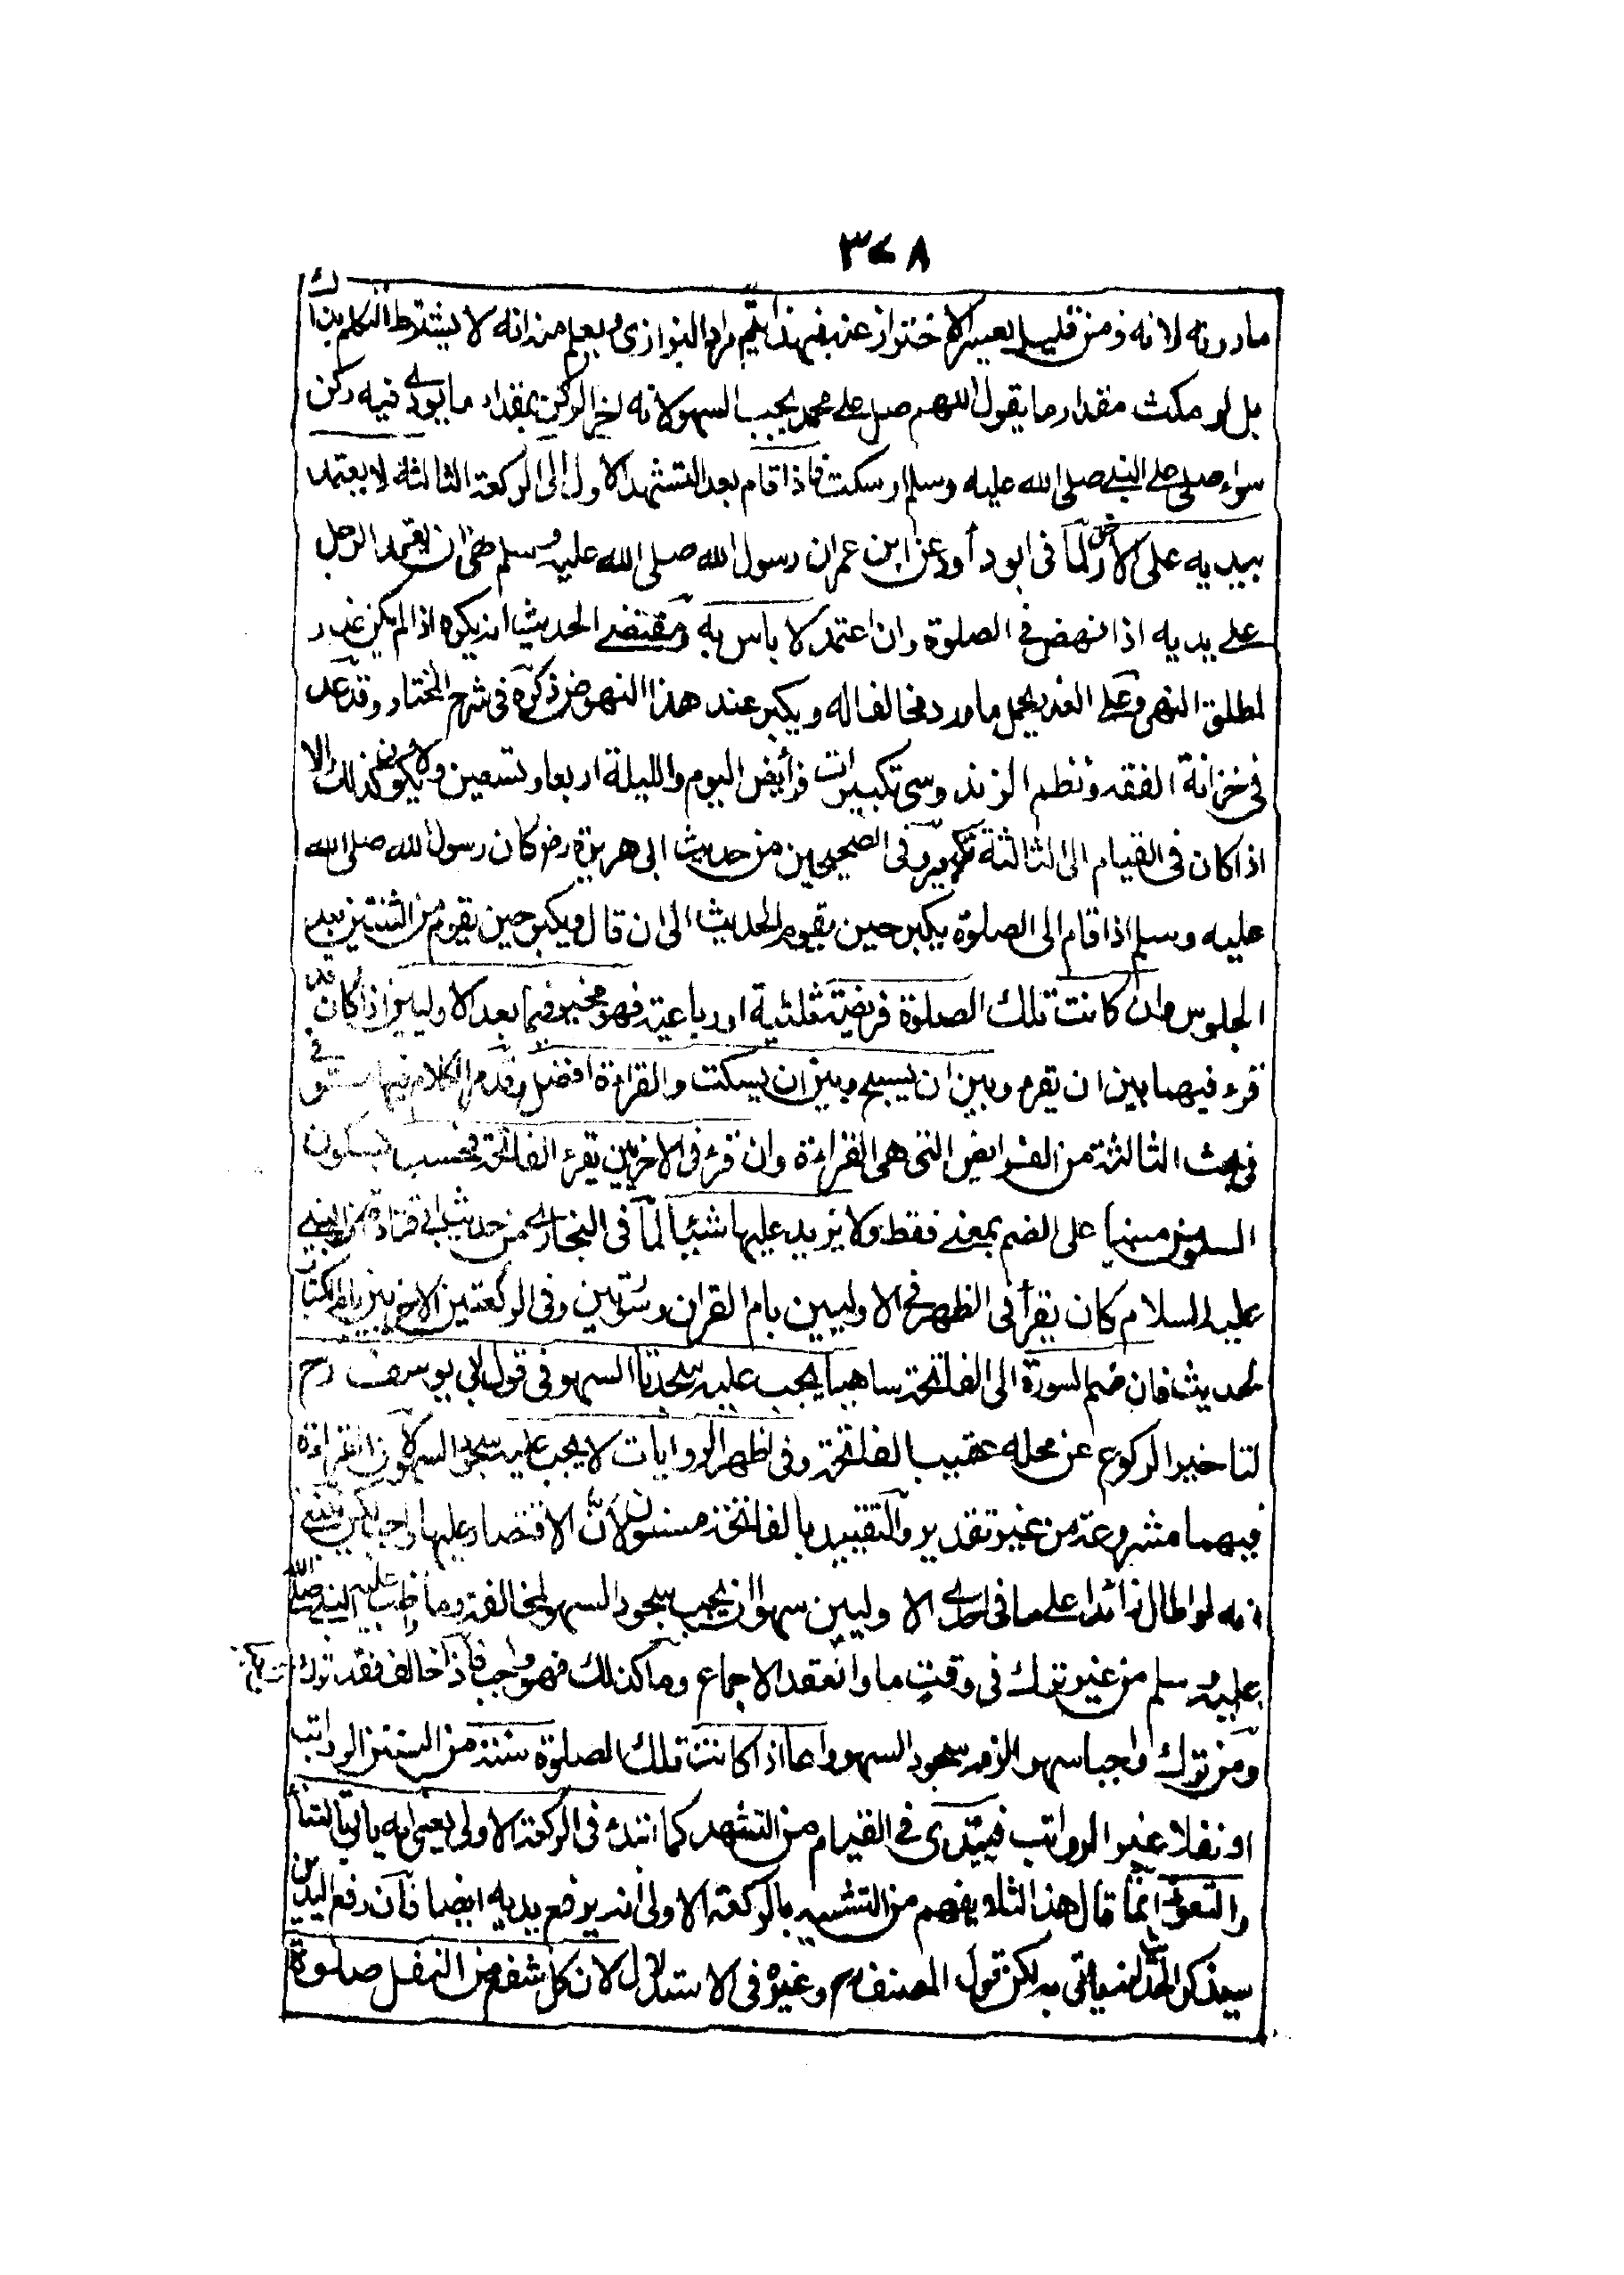 ٣٧٨
مادونه لانه زمن قليل يعسر الاحتراز عنه فبهذا يتم مراد البزازى ويعلم منه انه لا يشترط التكلم بذلك
بل لو مكث مقدار ما يقول اللهم صل على محمد يجب السهو لانه اخر الركن بمقدار ما يؤدى فيه ركن
سواء صلى على النبى صلى الله عليه وسلم او سكت فاذا قام بعد التشهد الاول الى الركعة الثالثة لا يعتمد
بيديه على الارض لما فى ابو داود عن ابن عمر ان رسول الله صلى الله عليه وسلم نهى ان يعتمد الرجل
على يديه اذا نهض فى الصلوة وان اعتمد لا باس به ومقتضى الحديث انه يكره اذا لم يكن عذر
لمطلق النهى وعلى العذر يحمل ما ورد مخالفا له ويكبر عند هذا النهوض ذكره فى شرح المختار وقد عد
فى خزانة الفقه ونظم الزندوسى تكبيرات فرائض اليوم والليلة اربعا وتسعين ولا يكون كذلك الا
اذا كان فى القيام الى الثالثة تكبير وفى الصحيحين من حديث ابى هريرة رض كان رسول الله صلى الله
عليه وسلم اذا قام الى الصلوة يكبر حين يقوم الحديث الى ان قال ويكبر حين يقوم من الثنتين بعد
الجلوس وان كانت تلك الصلوة فريضة ثلثية او رباعية فهو مخير فيما بعد الاوليين اذا كان قد
قرء فيهما بين ان يقرء وبين ان يسبح وبين ان يسكت والقراءة افضل وقدم الكلام فيها مستوفى
فى بحث الثالثة من الفرائض التى هى القراءة وان قرء فى الاخريين يقرء الفاتحة فحسب بسكون
السين مبنيا على الضم بمعنى فقط ولا يزيد عليها شيئا لما فى البخارى من حديث ابى قتادة ان النبى
عليه السلام كان يقرأ فى الظهر فى الاوليين بام القران وسورتين وفى الركعتين الاخريين بام الكتاب
الحديث فان ضم السورة الى الفاتحة ساهيا يجب عليه سجدتا السهو فى قول ابى يوسف رح
لتاخير الركوع عن محله عقيب الفاتحة وفى اظهر الروايات لا يجب عليه سجود السهو لان القراءة
فيهما مشروعة من غير تقدير والتقييد بالفاتحة مسنون لان الاقتصار عليها واجب
انه لو اطال زائدا على ما فى احدى الاوليين سهوا ان يجب سجود السهو لمخالفة وما واظب عليه النبى صلى الله
عليه وسلم من غير ترك فى وقت ما وانعقد الاجماع وما كذلك فهو واجب فاذا خالف فقد ترك
ومن ترك واجبا سهوا لزمه سجود السهو واما اذا كانت تلك الصلوة سنة من السنن الرواتب
او نفلا غير الرواتب فيبتدى فى القيام من التشهد كما ابتدء فى الركعة الاولى يعنى انه ياتى بالثناء
والتعوذ انما قال هذا لئلا يفهم من التشبيه بالركعة الاولى انه يرفع يديه ايضا فان رفع اليدين
سيذكر انه لا ياتى به لكن قول المصنف رح وغيره فى الاستدلال لان كل شفع من النفل صلوة